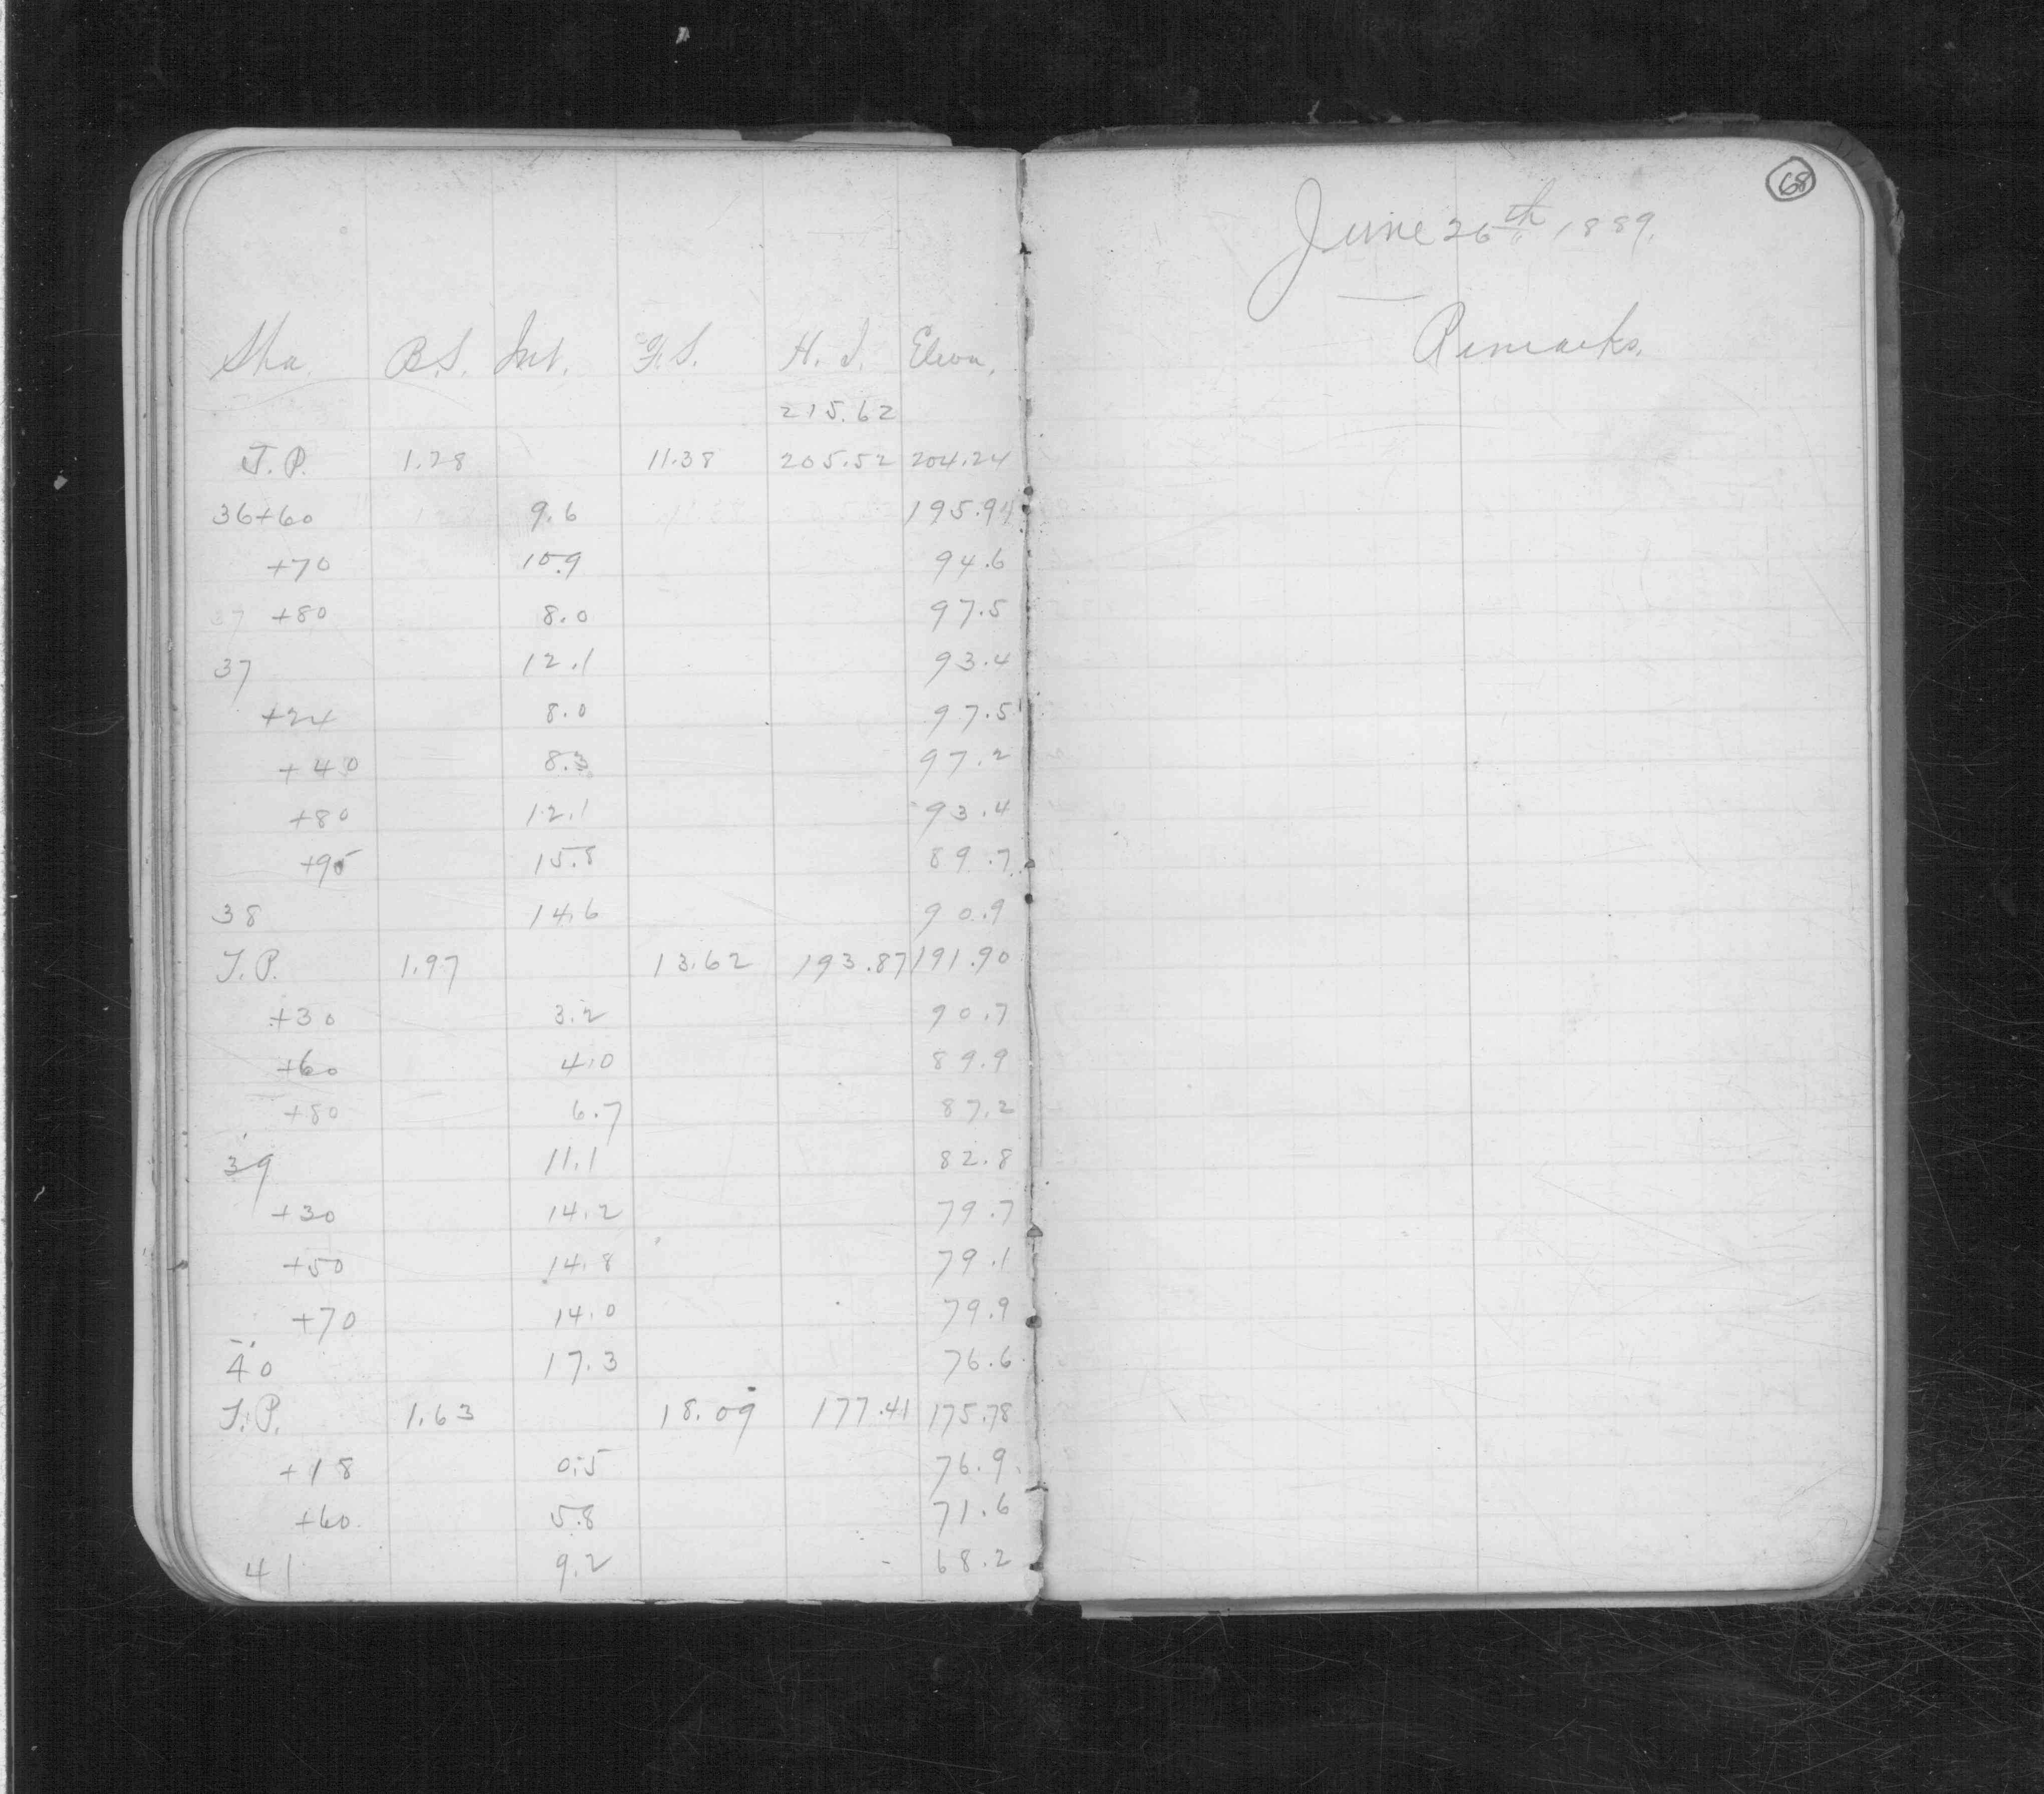 Sta. B.S. Int. F.S. H.I. Eleva.
215.62
T.P. 1.28 11.38 205.52 204.24
36+60 9.6 195.94
+70 10.9 94.6
37 +80 8.0 97.5
37 12.1 93.4
+24 8.0 97.5
+40 8.3 97.2
+80 12.1 93.4
+95 15.8 89.7
38 14.6 90.9
T.P. 1.97 13.62 193.87 191.90
+30 3.2 90.7
+60 4.0 89.9
+80 6.7 87.2
39 11.1 82.8
+30 14.2 79.7
+50 14.8 79.1
+70 14.0 79.9
40 17.3 76.6
T.P. 1.63 18.09 177.41 175.78
+18 0.5 76.9
+60 5.8 71.6
41 9.2 68.2
68
June 26th 1889.
Remarks.